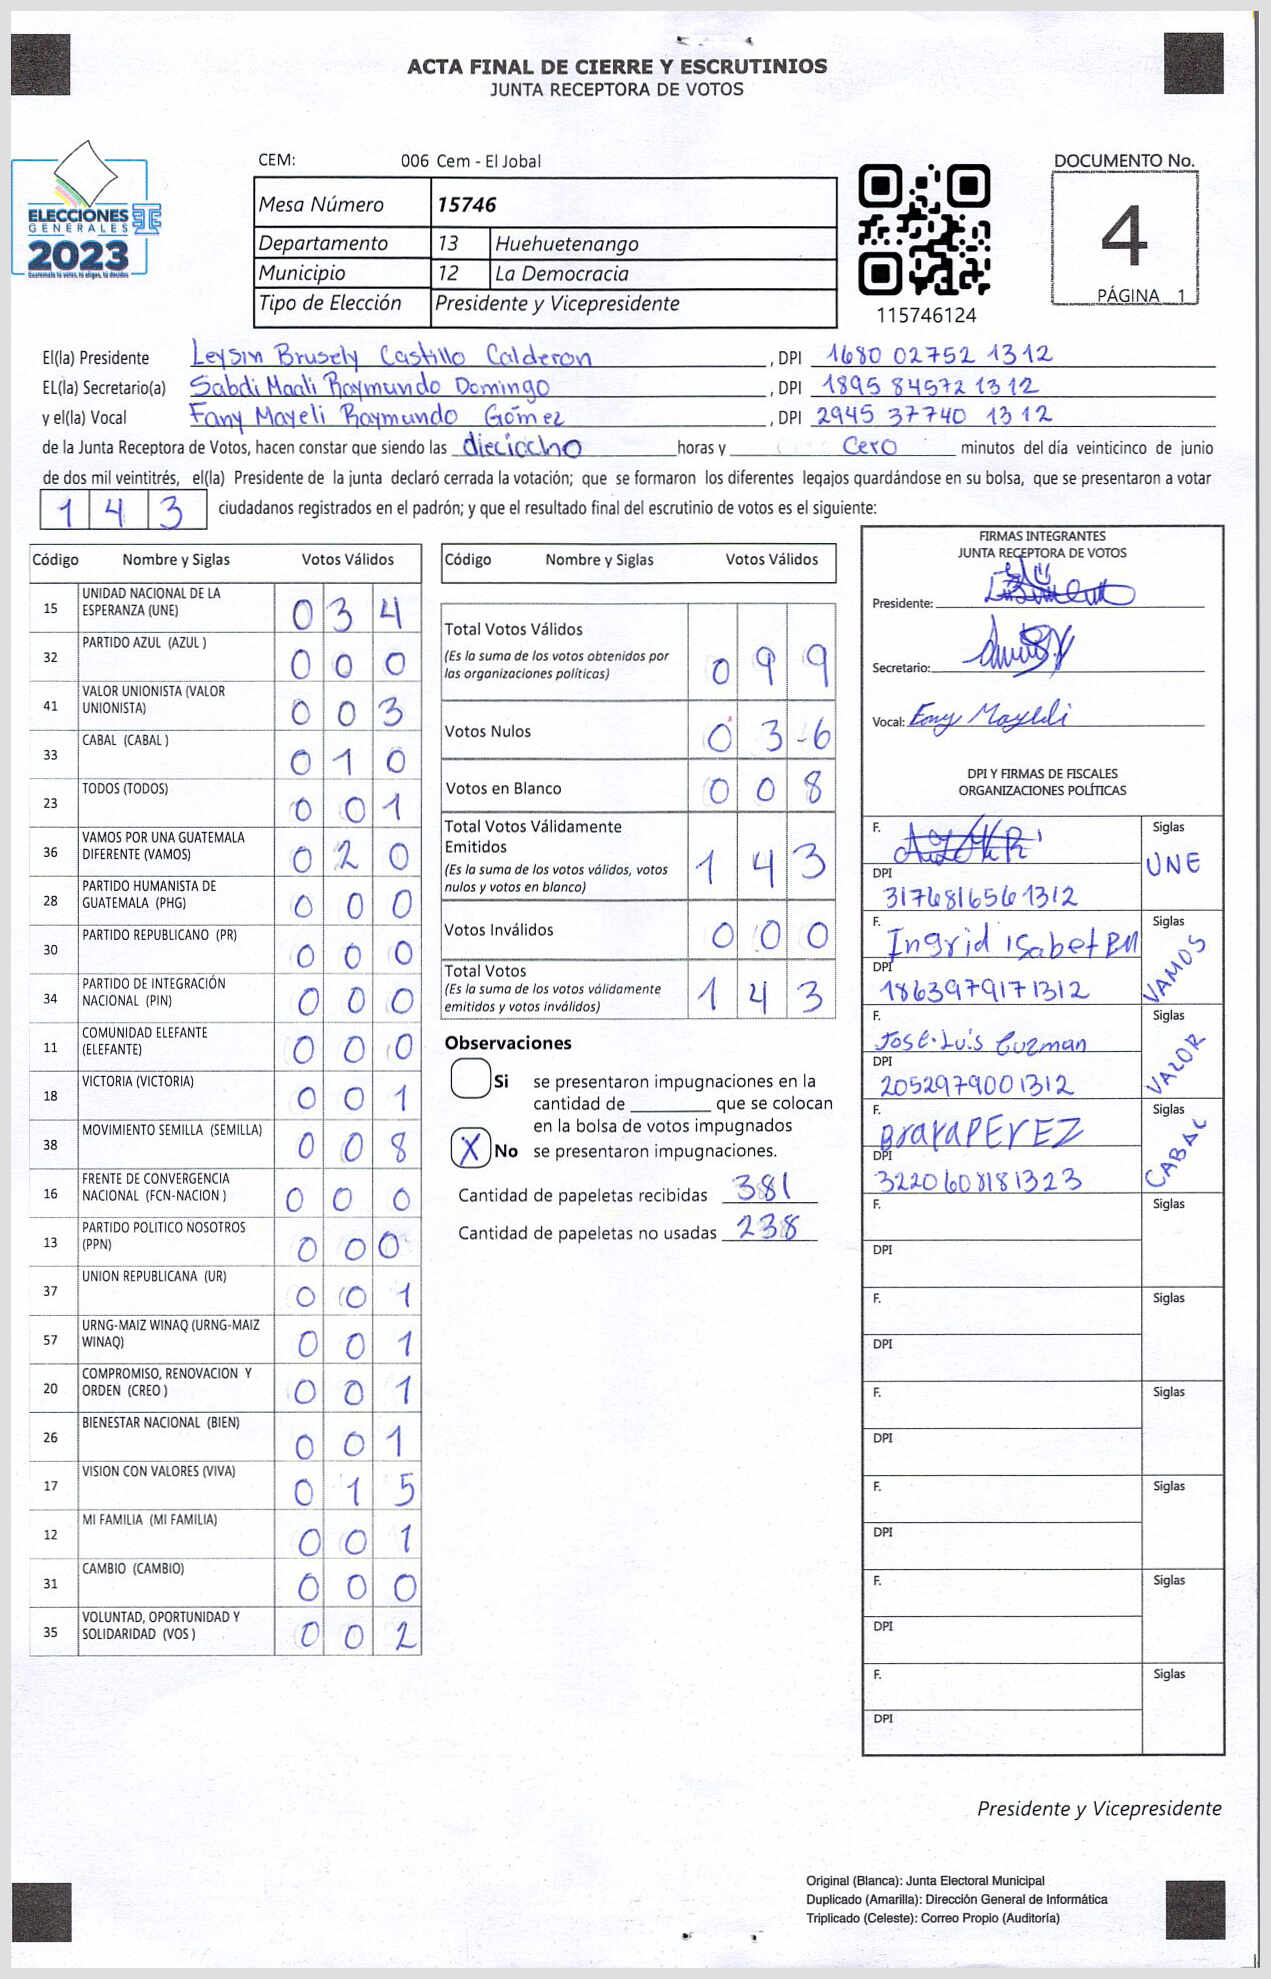 ACTA FINAL DE CIERRE Y ESCRUTINIOS
JUNTA RECEPTORA DE VOTOS
CEM: 006 Cem - El Jobal
DOCUMENTO No.
4
PÁGINA 1
ELECCIONES
GENERALES
2023
Mesa Número 15746
Departamento 13 Huehuetenango
Municipio 12 La Democracia
Tipo de Elección Presidente y Vicepresidente
115746124
El(la) Presidente Leysin Brusely Castillo Calderon, DPI 1680 02752 1312
EL(la) Secretario(a) Sabdi Magli Raymundo Domingo, DPI 1895 84572 1312
y el(la) Vocal Fany Mayeli Raymundo Gómez, DPI 2945 37740 1312
de la Junta Receptora de Votos, hacen constar que siendo las dieciocho horas y cero minutos del día veinticinco de junio
de dos mil veintitrés, el(la) Presidente de la junta declaró cerrada la votación; que se formaron los diferentes legajos guardándose en su bolsa, que se presentaron a votar
1 4 3 ciudadanos registrados en el padrón; y que el resultado final del escrutinio de votos es el siguiente:
Código Nombre y Siglas Votos Válidos
15 UNIDAD NACIONAL DE LA ESPERANZA (UNE) 0 3 4
32 PARTIDO AZUL (AZUL ) 0 0 0
41 VALOR UNIONISTA (VALOR UNIONISTA) 0 0 3
33 CABAL (CABAL ) 0 1 0
23 TODOS (TODOS) 0 0 1
36 VAMOS POR UNA GUATEMALA DIFERENTE (VAMOS) 0 2 0
28 PARTIDO HUMANISTA DE GUATEMALA (PHG) 0 0 0
30 PARTIDO REPUBLICANO (PR) 0 0 0
34 PARTIDO DE INTEGRACIÓN NACIONAL (PIN) 0 0 0
11 COMUNIDAD ELEFANTE (ELEFANTE) 0 0 0
18 VICTORIA (VICTORIA) 0 0 1
38 MOVIMIENTO SEMILLA (SEMILLA) 0 0 8
16 FRENTE DE CONVERGENCIA NACIONAL (FCN-NACION ) 0 0 0
13 PARTIDO POLITICO NOSOTROS (PPN) 0 0 0
37 UNION REPUBLICANA (UR) 0 0 1
57 URNG-MAIZ WINAQ (URNG-MAIZ WINAQ) 0 0 1
20 COMPROMISO, RENOVACION Y ORDEN (CREO ) 0 0 1
26 BIENESTAR NACIONAL (BIEN) 0 0 1
17 VISION CON VALORES (VIVA) 0 1 5
12 MI FAMILIA (MI FAMILIA) 0 0 1
31 CAMBIO (CAMBIO) 0 0 0
35 VOLUNTAD, OPORTUNIDAD Y SOLIDARIDAD (VOS ) 0 0 2
Código Nombre y Siglas Votos Válidos
Total Votos Válidos 0 9 9
(Es la suma de los votos obtenidos por
las organizaciones políticas)
Votos Nulos 0 3 6
Votos en Blanco 0 0 8
Total Votos Válidamente
Emitidos 1 4 3
(Es la suma de los votos válidos, votos
nulos y votos en blanco)
Votos Inválidos 0 0 0
Total Votos 1 4 3
(Es la suma de los votos válidamente
emitidos y votos inválidos)
Observaciones
Si se presentaron impugnaciones en la
cantidad de ________ que se colocan
en la bolsa de votos impugnados
X No se presentaron impugnaciones.
Cantidad de papeletas recibidas 381
Cantidad de papeletas no usadas 238
FIRMAS INTEGRANTES
JUNTA RECEPTORA DE VOTOS
Presidente:
Secretario:
Vocal: Fany Mayeli
DPI Y FIRMAS DE FISCALES
ORGANIZACIONES POLÍTICAS
F. Siglas
UNE
DPI
3176816561312
F. Ingrid isabet Siglas
VAMOS
DPI
1863979171312
F. Siglas
JOSE Luis Guzman
VALOR
DPI
2052979001312
F. Siglas
PEREZ
CABAL
DPI
3220608181323
F. Siglas
DPI
F. Siglas
DPI
F. Siglas
DPI
F. Siglas
DPI
F. Siglas
DPI
F. Siglas
DPI
Presidente y Vicepresidente
Original (Blanca): Junta Electoral Municipal
Duplicado (Amarilla): Dirección General de Informática
Triplicado (Celeste): Correo Propio (Auditoría)